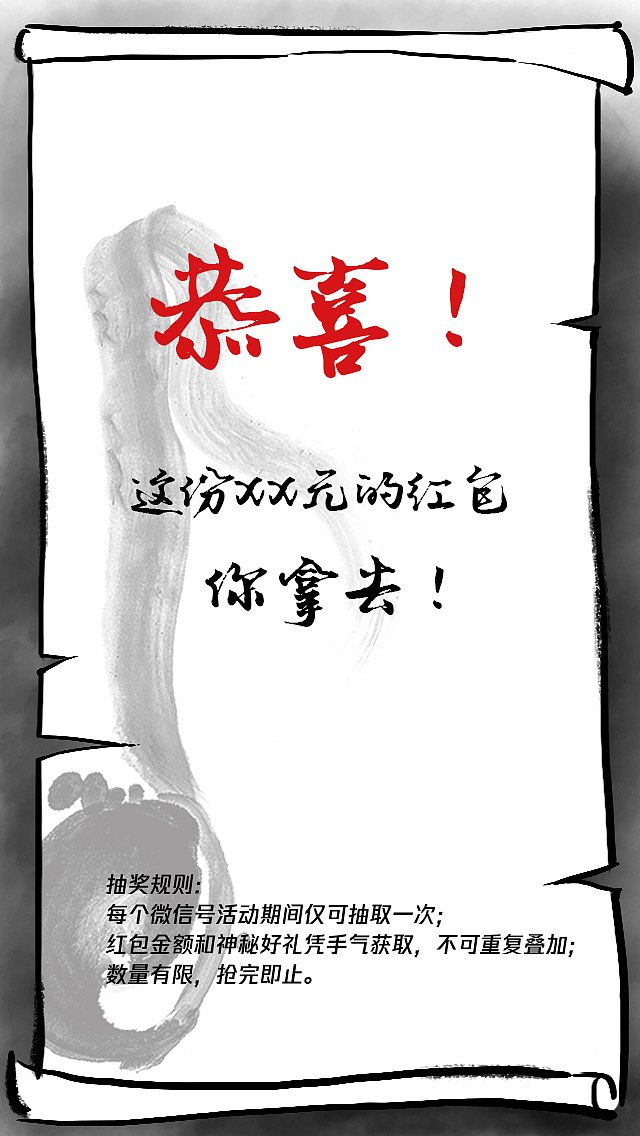 恭喜！
这份XX元的红包
你拿去！
抽奖规则:
每个微信号活动期间仅可抽取一次;
红包金额和神秘好礼凭手气获取，不可重复叠加;
数量有限，抢完即止。